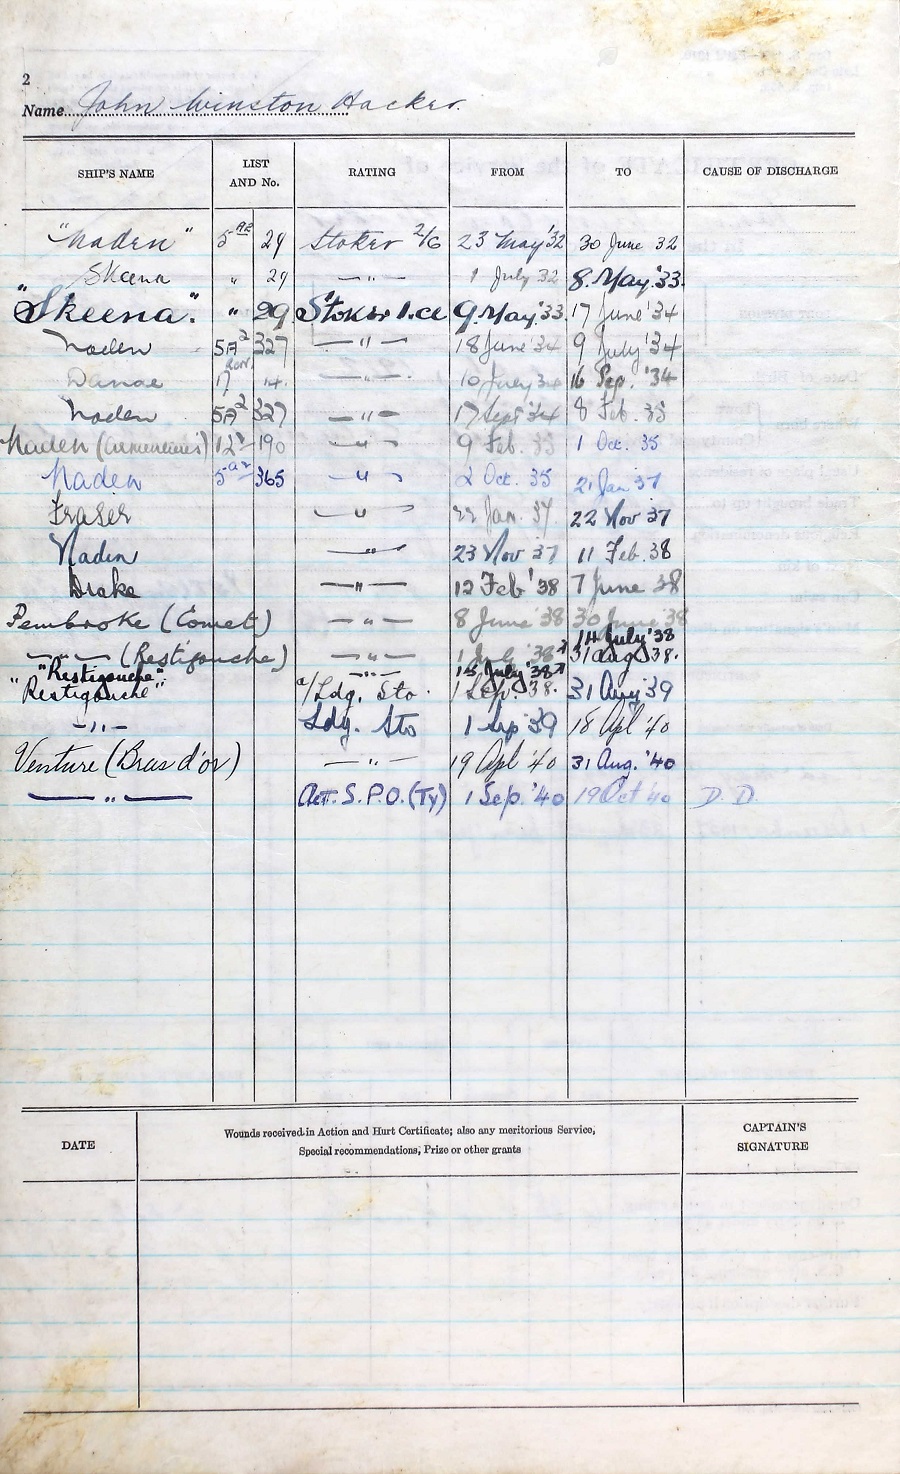 2
Name John Winston Hacker
SHIP'S NAME LIST AND No. RATING FROM TO CAUSE OF DISCHARGE
"Naden" 5 A2 29 Stoker 2/c 23 May '32 30 June 32
Skeena " 29 —"— 1 July 32 8. May. '33.
"Skeena." " 29 Stoker 1.cl 9. May. '33. 17 June '34
Naden 5A2 327 —"— 18 June '34 9 July '34
Danae 17 14. —"— 10 July 34 16 Sep. '34
Naden 5A2 327 —"— 17 Sept '34 8 Feb. 35
Naden (Armentieres) 12 190 —"— 9 Feb. 35 1 Oct. 35
Naden 5A2 365 —"— 2 Oct. 35 21 Jan 37
Fraser —"— 22 Jan. 37 22 Nov 37
Naden —"— 23 Nov 37 11 Feb. 38
Drake —"— 12 Feb '38 7 June 38
Pembroke (Comet) —"— 8 June '38 30 June '38
14 July '38
—"— (Restigouche) —"— 1 July '38 31 Aug 38.
"Restigouche". —"— 15 July '38
"Restigouche" a/Ldg. Sto. 1 Sep. '38. 31 Aug '39
—"— Ldg. Sto 1 Sep '39 18 Apl '40
Venture (Bras d'or) —"— 19 Apl '40 31 Aug. '40
—"— Act. S.P.O. (Ty) 1 Sep. '40 19 Oct '40 D.D.
DATE Wounds received in Action and Hurt Certificate; also any meritorious Service, CAPTAIN'S
Special recommendations, Prize or other grants SIGNATURE